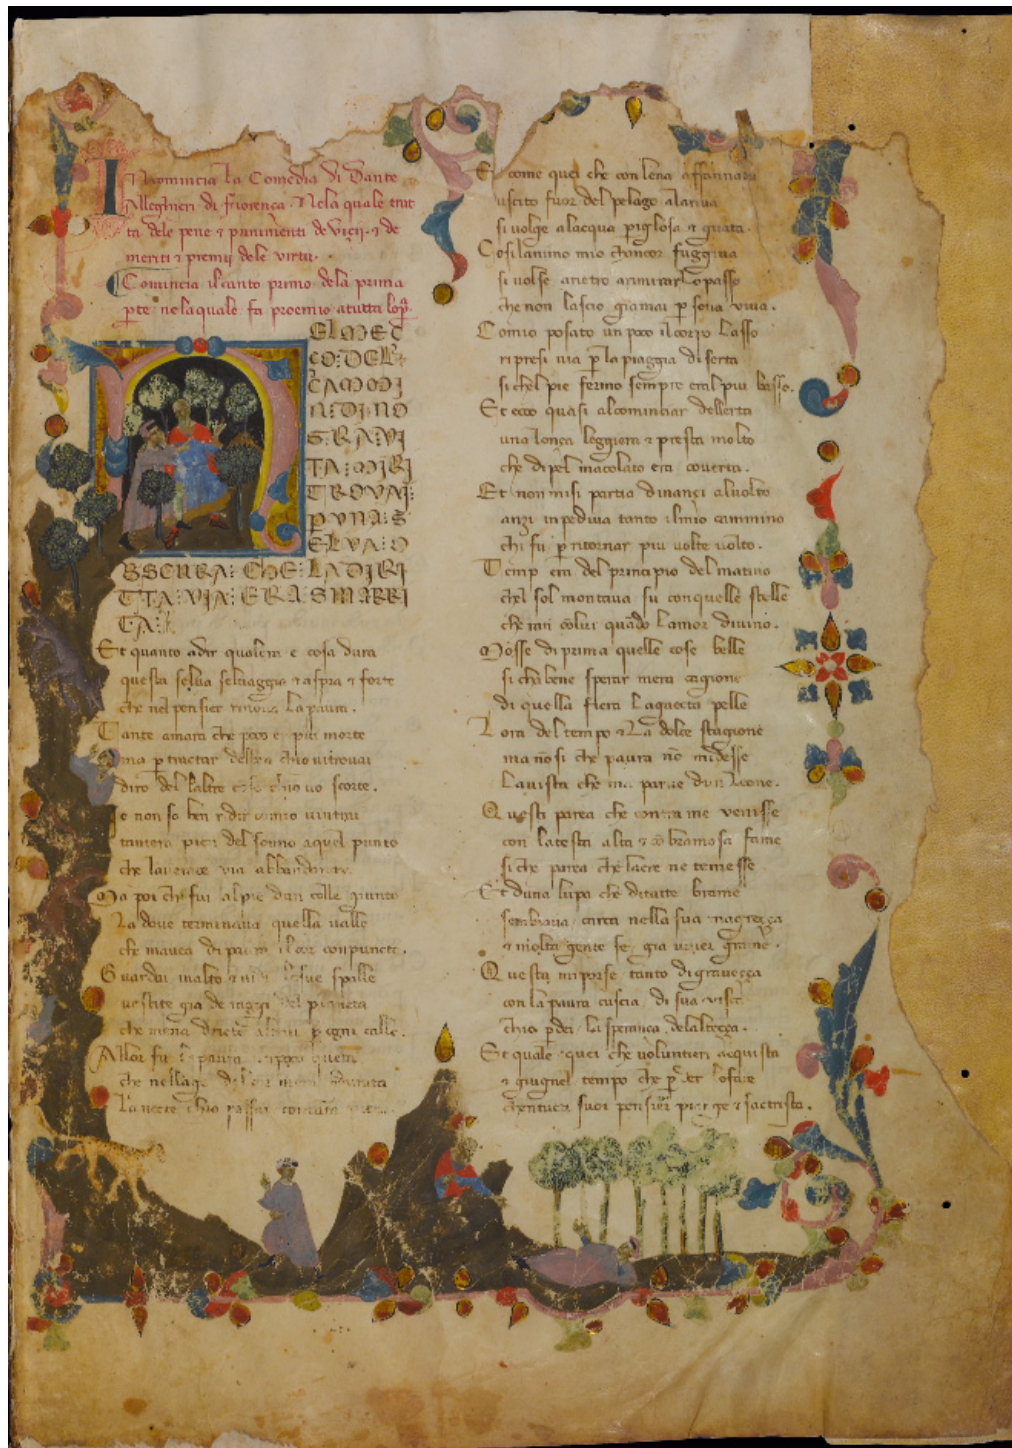 Incomincia la Comedia di Dante
Alleghieri di fiorença. Nela quale trat
ta dele pene et punimenti de viçii. et de
meriti et premij dele virtu.
Comincia il canto primo dela prima
parte nelaquale fa proemio atutta lopera.
NELMEÇ
ÇO:DEL:
CAMODI
N:DI:NO
S:RA:VI
TA:MIRI
TROVAI:
P VNA:S
ELVA:O
BSCURA: CHE: LADIRI
TTA:VIA:ERA SMARRI
TA:
Et quanto adir qualera e cosa dura
questa selua seluaggia et aspra et forte
che nel pensier la paura.
Tante amara che poco e piu morte
ma per tractar chio ui trouai
diro del laltre cose chio uo scorte.
Jo non so ben ridir comio uintrai
tantera pien del sonno aquel punto
che la uerace via abbandonai.
Ma poi chi fui al pie dun colle giunto
La doue terminaua quella ualle
che mauea di paura il cor conpuncto.
Guardai in alto et le sue spalle
uestite gia de raggi del pianeta
che mena dricto altrui per ogni calle.
Allor fu la paura un poco queta
che nel lago del cor mera durata
La nocte chio passai con tanta
Et come quei che con lena affannata
uscito fuor del pelago alariua
si volge alacqua perigliosa et guata.
Cosi lanimo mio chancor fuggiua
si uolse arietro armirar lo passo
che non lascio giamai persona viua.
Comio posato un poco il corpo lasso
ripresi uia per la piaggia diserta
si chel pie fermo sempre eral piu basso.
Et ecco quasi alcominciar dellerta
una lonça leggiera et presta molto
che dipel macolato era couerta.
Et non misi partia dinançi aluolto
anzi inpediua tanto ilmio cammino
chi fu per ritornar piu uolte uolto.
Temp era del principio del matino
chel sol montaua su con quelle stelle
cheran collui quando lamor diuino.
Mosse di prima quelle cose belle
si cha bene sperar mera cagione
di quella fiera la gaecta pelle
Lora del tempo et la dolce stagione
ma non si che paura non midesse
La uista che mi parue dun leone.
Questi parea che contra me venisse
con latesta alta et con bramosa fame
si che parea che laere ne temesse
Et duna lupa che ditutte brame
sembiaua carca nella sua magreçça
et molta gente fe gia uiuer grame.
Questa mi porse tanto di graueçça
con la paura cuscia di sua vista
chio perdei la sperança delalteçça.
Et quale quei che uoluntieri acquista
et giugnel tempo che perder lo face
chentucti suoi pensier piange et sactrista.